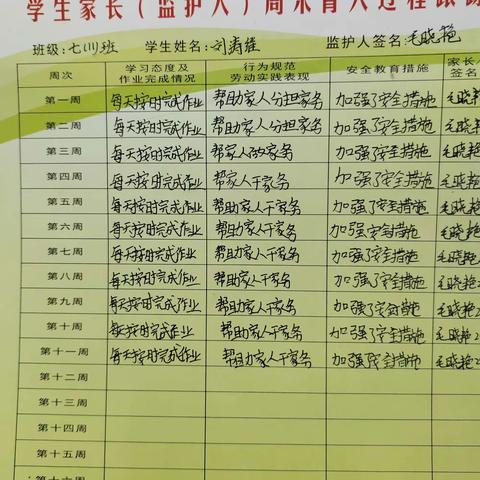 学生家长（监护人）周末育人过程跟踪
班级：七（1）班 学生姓名：刘 监护人签名：毛晓艳
周次 学习态度及作业完成情况 行为规范劳动实践表现 安全教育措施 家长 签名
第一周 每天按时完成作业 帮助家人分担家务 加强了安全措施 毛晓艳
第二周 每天按时完成作业 帮助家人分担家务 加强了安全措施 毛晓艳
第三周 每天按时完成作业 帮家人做家务 加强了安全措施 毛晓艳
第四周 每天按时完成作业 帮家人干家务 加强了安全措施 毛晓艳
第五周 每天按时完成作业 帮助家人干家务 加强了安全措施 毛晓艳
第六周 每天按时完成作业 帮助家人干家务 加强了安全措施 毛晓艳
第七周 每天按时完成作业 帮助家人干家务 加强了安全措施 毛晓艳
第八周 每天按时完成作业 帮助家人干家务 加强了安全措施 毛晓艳
第九周 每天按时完成作业 帮助家人干家务 加强了安全措施 毛晓艳
第十周 每天按时完成作业 帮助家人干家务 加强了安全措施 毛晓艳
第十一周 每天按时完成作业 帮助家人干家务 加强了安全措施 毛晓艳
第十二周
第十三周
第十四周
第十五周